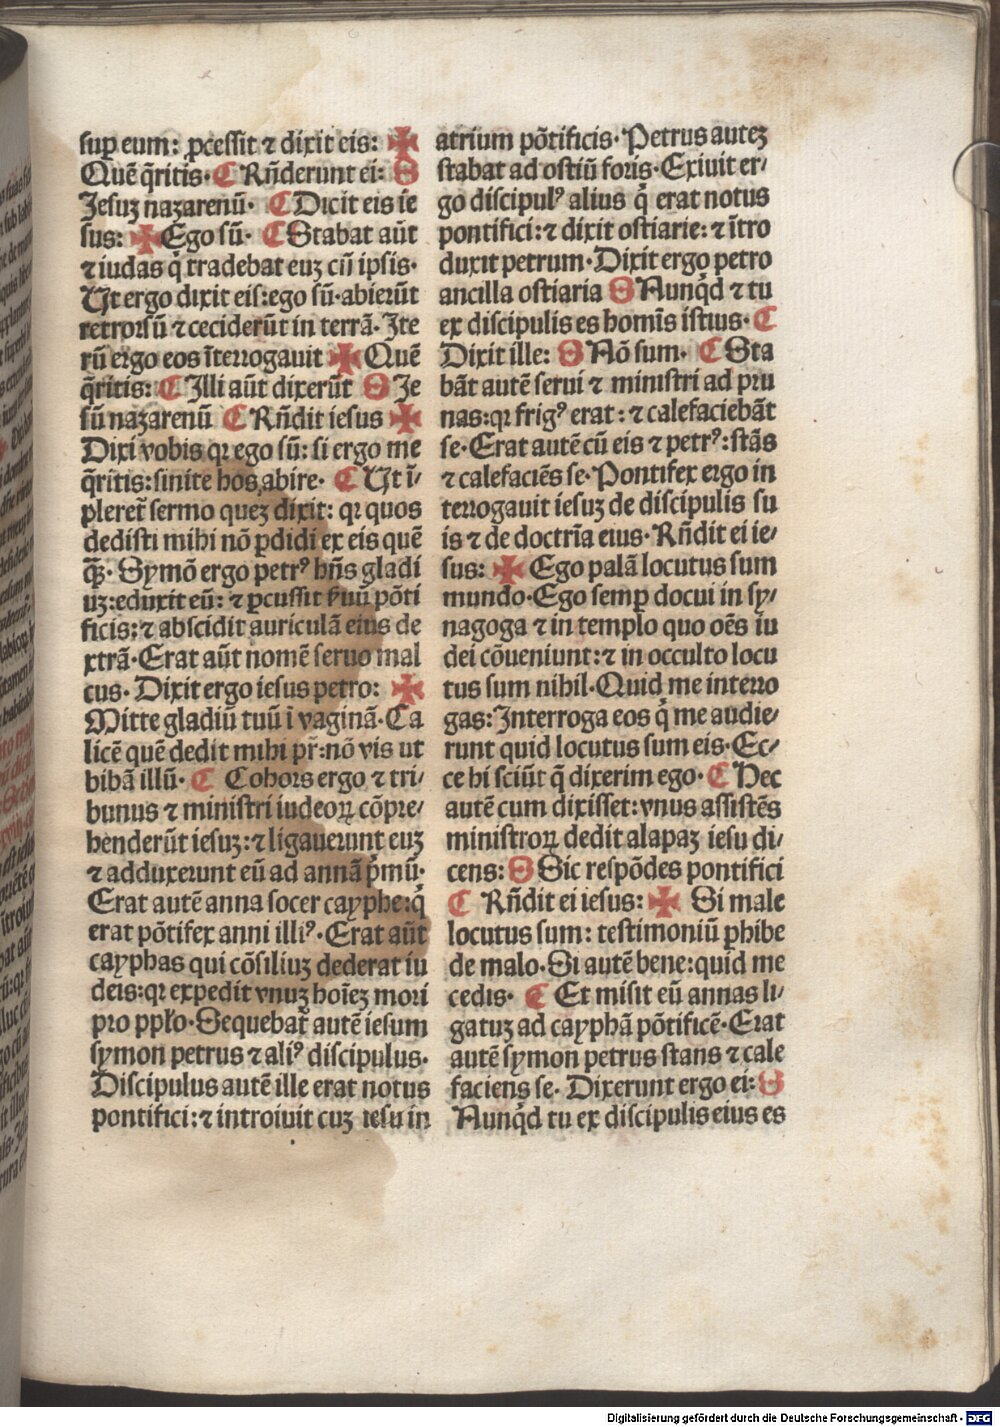 suꝑ eum: ꝓcessit ⁊ dixit eis: ✠
Quē q̄ritis. C Rn̄derunt ei: S
Jesuꝫ nazarenū. C Dicit eis ie
sus: ✠ Ego sū. C Stabat aūt
⁊ iudas q̇ tradebat euꝫ cū ipsis.
Ut ergo dixit eis: ego sū. abierūt
retrorsū ⁊ ceciderūt in terrā. Ite
rū ergo eos īterrogauit ✠ Quē
q̄ritis: C Illi aūt dixerūt S Je
sū nazarenū C Rn̄dit iesus ✠
Dixi vobis qꝛ ego sū: si ergo me
q̄ritis: sinite hos abire. C Ut ī-
pleret̄ sermo queꝫ dixit: qꝛ quos
dedisti mihi nō ꝑdidi ex eis quē
q̄ꝫ. Symō ergo petrꝰ hn̄s gladi
uꝫ: eduxit eū: ⁊ ꝑcussit ẜuū pōti
ficis: ⁊ abscidit auriculā eius de
xtrā. Erat aūt nomē seruo mal
cus. Dixit ergo iesus petro: ✠
Mitte gladiū tuū ī vaginā. Ca
licē quē dedit mihi pr̄: nō vis ut
bibā illū. C Cohors ergo ⁊ tri-
bunus ⁊ ministri iudeoꝝ cōpre-
henderūt iesuꝫ: ⁊ ligauerunt euꝫ
⁊ adduxerunt eū ad annā pͥmū.
Erat autē anna socer cayphe: q̇
erat pōtifex anni illiꝰ. Erat aūt
cayphas qui cōsiliuꝫ dederat iu
deis: qꝛ expedit vnuꝫ hoīeꝫ mori
pro pplo. Sequebat̄ autē iesum
symon petrus ⁊ aliꝰ discipulus.
Discipulus autē ille erat notus
pontifici: ⁊ introiuit cuꝫ iesu in
atrium pōtificis. Petrus auteꝫ
stabat ad ostiū foris. Exiuit er-
go discipulꝰ alius q̇ erat notus
pontifici: ⁊ dixit ostiarie: ⁊ ītro
duxit petrum. Dixit ergo petro
ancilla ostiaria S Nunq̇d ⁊ tu
ex discipulis es homīs istius. C
Dixit ille: S Nō sum. C Sta
bāt autē serui ⁊ ministri ad pru
nas: qꝛ frigꝰ erat: ⁊ calefaciebāt
se. Erat autē cū eis ⁊ petrꝰ: stās
⁊ calefaciēs se. Pontifex ergo in
terrogauit iesuꝫ de discipulis su
is ⁊ de doctrīa eius. Rn̄dit ei ie-
sus: ✠ Ego palā locutus sum
mundo. Ego semꝑ docui in sy-
nagoga ⁊ in templo quo oēs iu
dei cōueniunt: ⁊ in occulto locu
tus sum nihil. Quid me interro
gas: Interroga eos q̇ me audie-
runt quid locutus sum eis. Ec-
ce hi sciūt q̄ dixerim ego. C Hec
autē cum dixisset: vnus assistēs
ministroꝝ dedit alapaꝫ iesu di-
cens: S Sic respōdes pontifici
C Rn̄dit ei iesus: ✠ Si male
locutus sum: testimoniū ꝑhibe
de malo. Si autē bene: quid me
cedis. C Et misit eū annas li-
gatuꝫ ad cayphā pōtificē. Erat
autē symon petrus stans ⁊ cale
faciens se. Dixerunt ergo ei: S
Nunq̇d tu ex discipulis eius es
Digitalisierung gefördert durch die Deutsche Forschungsgemeinschaft - DFG